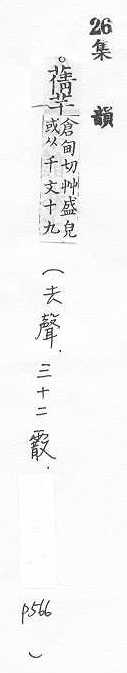 26集韻
。蒨芊倉甸切艸盛皃
或从千文十九
(去聲.三十二霰.
p566)